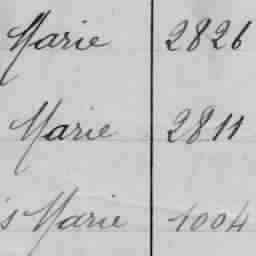 Marie 2826
Marie 2811
s Marie 1004